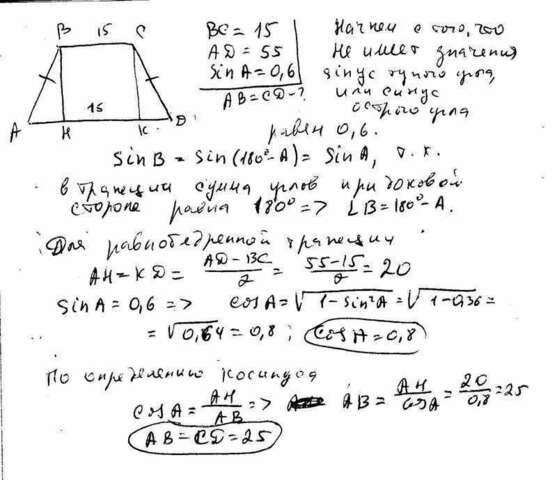 B 15 C
15
A H K D
BC = 15
AD = 55
sin A = 0,6
AB = CD - ?
Начнем с того, что
не имеет значения
синус тупого угла,
или синус
острого угла
равен 0,6.
sin B = sin(180° - A) = sin A, т.к.
в трапеции сумма углов при боковой
стороне равна 180° => ∠B = 180° - A.
Для равнобедренной трапеции
AH = KD = (AD - BC)/2 = (55-15)/2 = 20
sin A = 0,6 => cos A = √(1 - sin²A) = √(1 - 0,36) =
= √0,64 = 0,8; cos A = 0,8
По определению косинуса
cos A = AH/AB => AB = AH/cos A = 20/0,8 = 25
AB = CD = 25